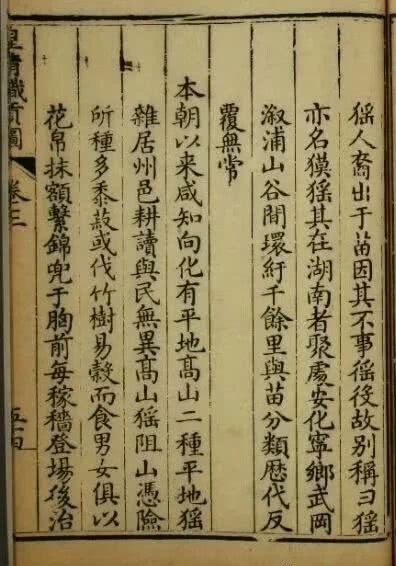 猺人裔出于苗因其不事徭役故别稱曰猺
亦名獏猺其在湖南者聚處安化寧鄉武岡
溆浦山谷間環紆千餘里與苗分類歴代反
覆無常
本朝以来咸知向化有平地髙山二種平地猺
雜居州邑耕讀與民無異髙山猺阻山憑險
所種多黍菽或伐竹樹易穀而食男女俱以
花帛抹額繫錦兜于胸前每稼穡登場後治
皇清職貢圖
卷三
五十四